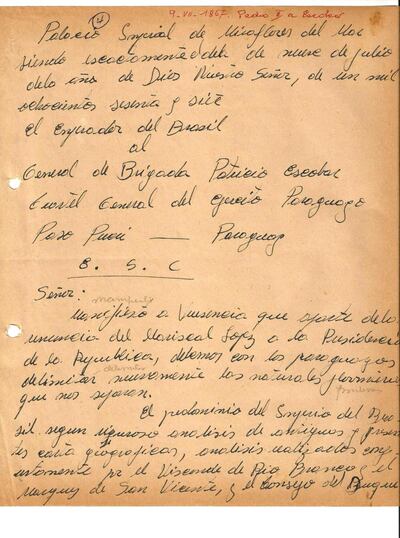 4
9-VII-1867. Pedro II a Escobar
Palacio Imperial de Miraflores del
siendo exactamente del de nueve de julio
del año de Dios Nuestro Señor, de un mil
ochocientos sesenta y siete
El Emperador del Brasil
al
General de Brigada Patricio Escobar
Cuartel General del Ejercito Paraguayo
Paso Pucú — Paraguay
E. S. C
Señor:
manifiesto
Manifiesto a Vuesencia que aparte de la
renuncia del Mariscal Lopez a la Presidencia
de la Republica, debemos con los paraguayos
delimitar
delimitar nuevamente las naturales fronteras
fronteras
que nos separan.
El predominio del Imperio del Bra
sil segun riguroso analisis de antiguas y presen
tes cartas geograficas, analisis realizados conj
untamente por el Visconde de Rio Branco y el
Marques de San Vicente, y el Consejo de